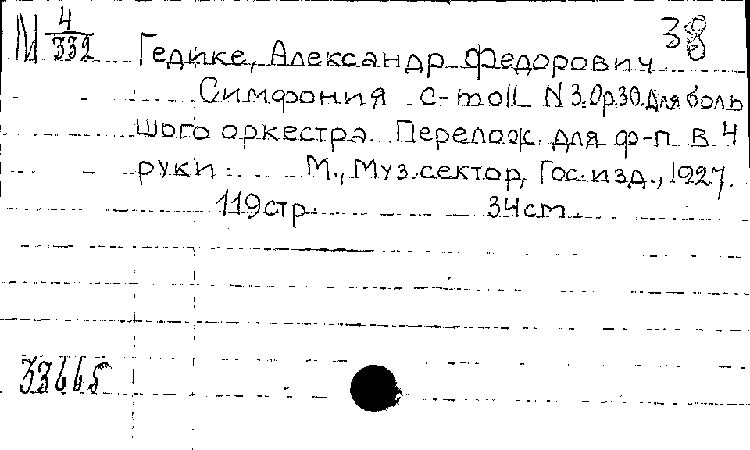 М 4/332
38
Гедике, Александр Федорович
Симфония c-moll N 3. Op 30. Для боль
шого оркестра. Перелож. для ф-п в 4
руки. М., Муз.сектор, Гос.изд., 1927.
119 стр. 34 cm.
33665